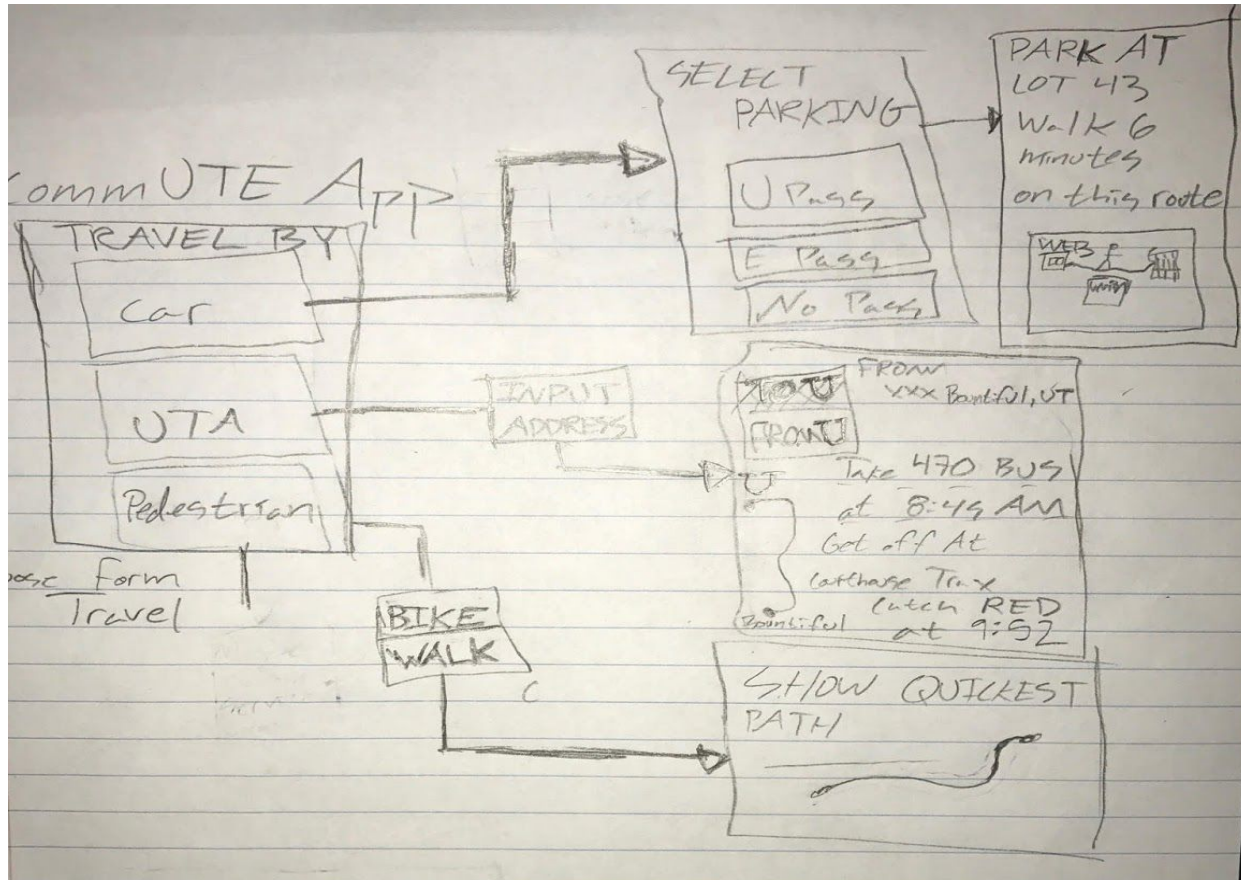 CommUTE App
TRAVEL BY
Car
UTA
Pedestrian
Form
Travel
SELECT
PARKING
U Pass
E Pass
No Pass
PARK AT
LOT 43
Walk 6
minutes
on this route
WEB
INPUT
ADDRESS
TO U
FROM U
FROM
XXX Bountiful, UT
U
Take 470 BUS
at 8:45 AM
Get off At
Courthouse Trax
Catch RED
at 9:52
Bountiful
BIKE
WALK
C
SHOW QUICKEST
PATH